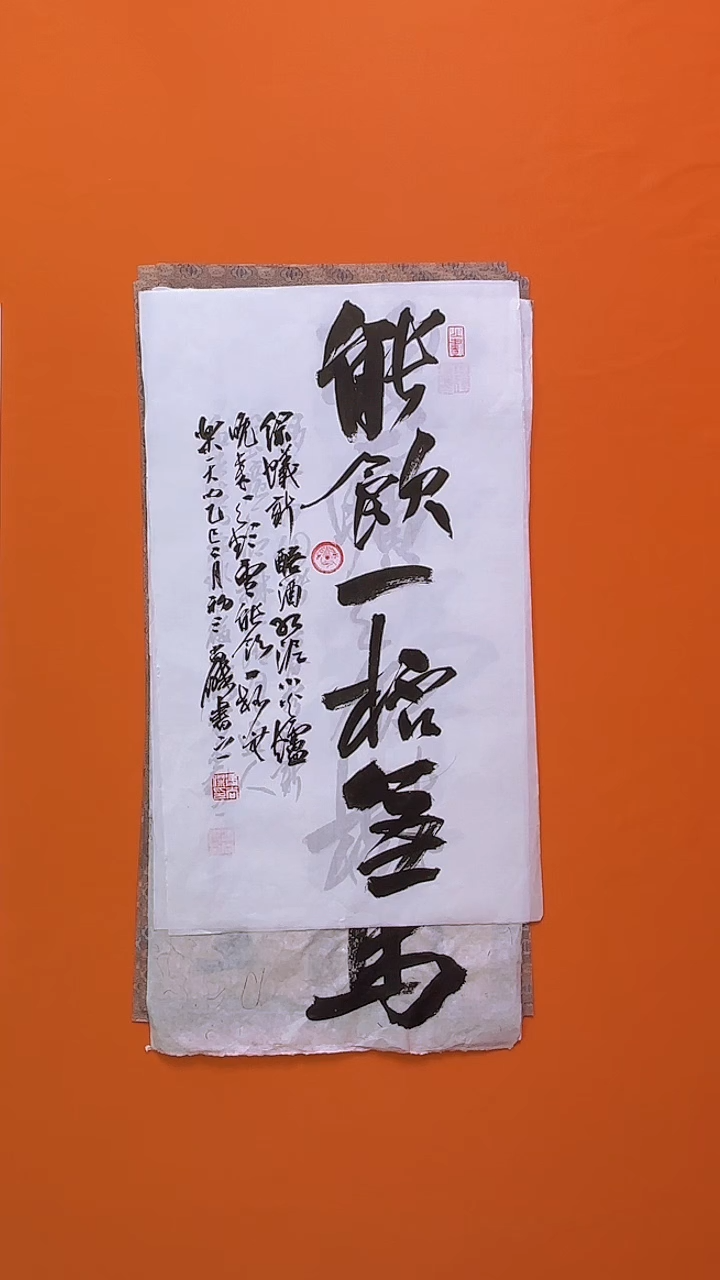 能飲一桮無
綠蟻新醅酒紅泥小火爐
晚來天欲雪能飲一桮無
樂天句乙巳二月初三書